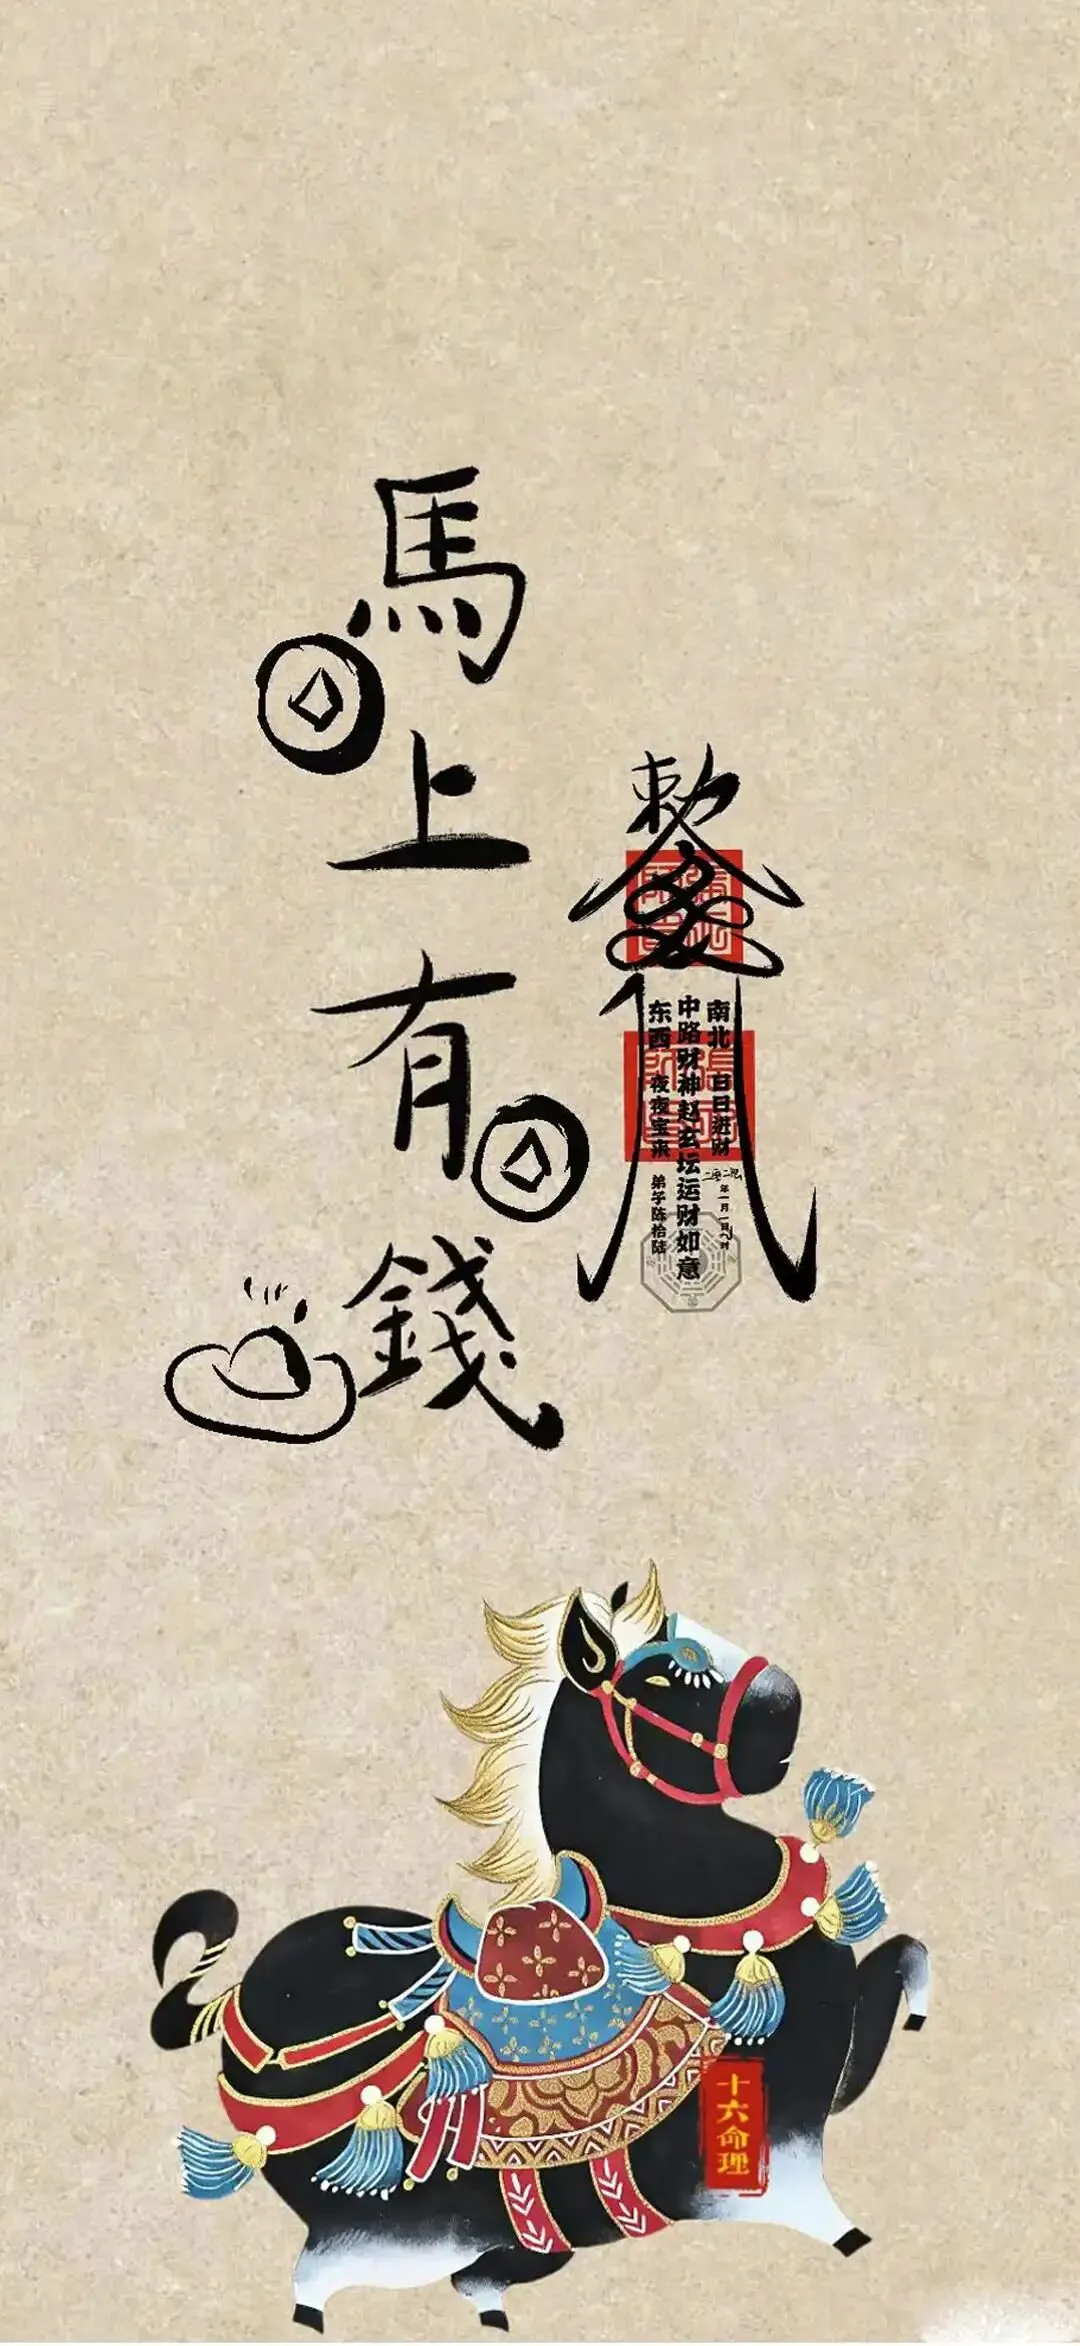 馬上有錢
敕令
南北 白日进财
中路财神赵玄坛运财如意
东西 夜夜宝来
弟子陈拾陆
年一月一日
十六命理